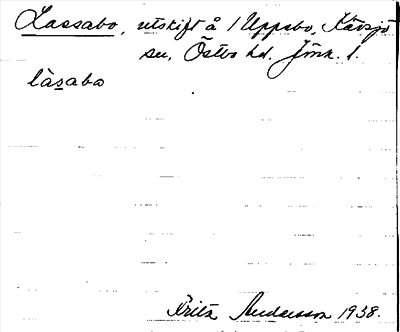 Lassabo, utskift å 1 Uppsbo, Kävsjö
sn, Östbo hd. Jönk. l.
làsabo
Brita Andersson 1938.